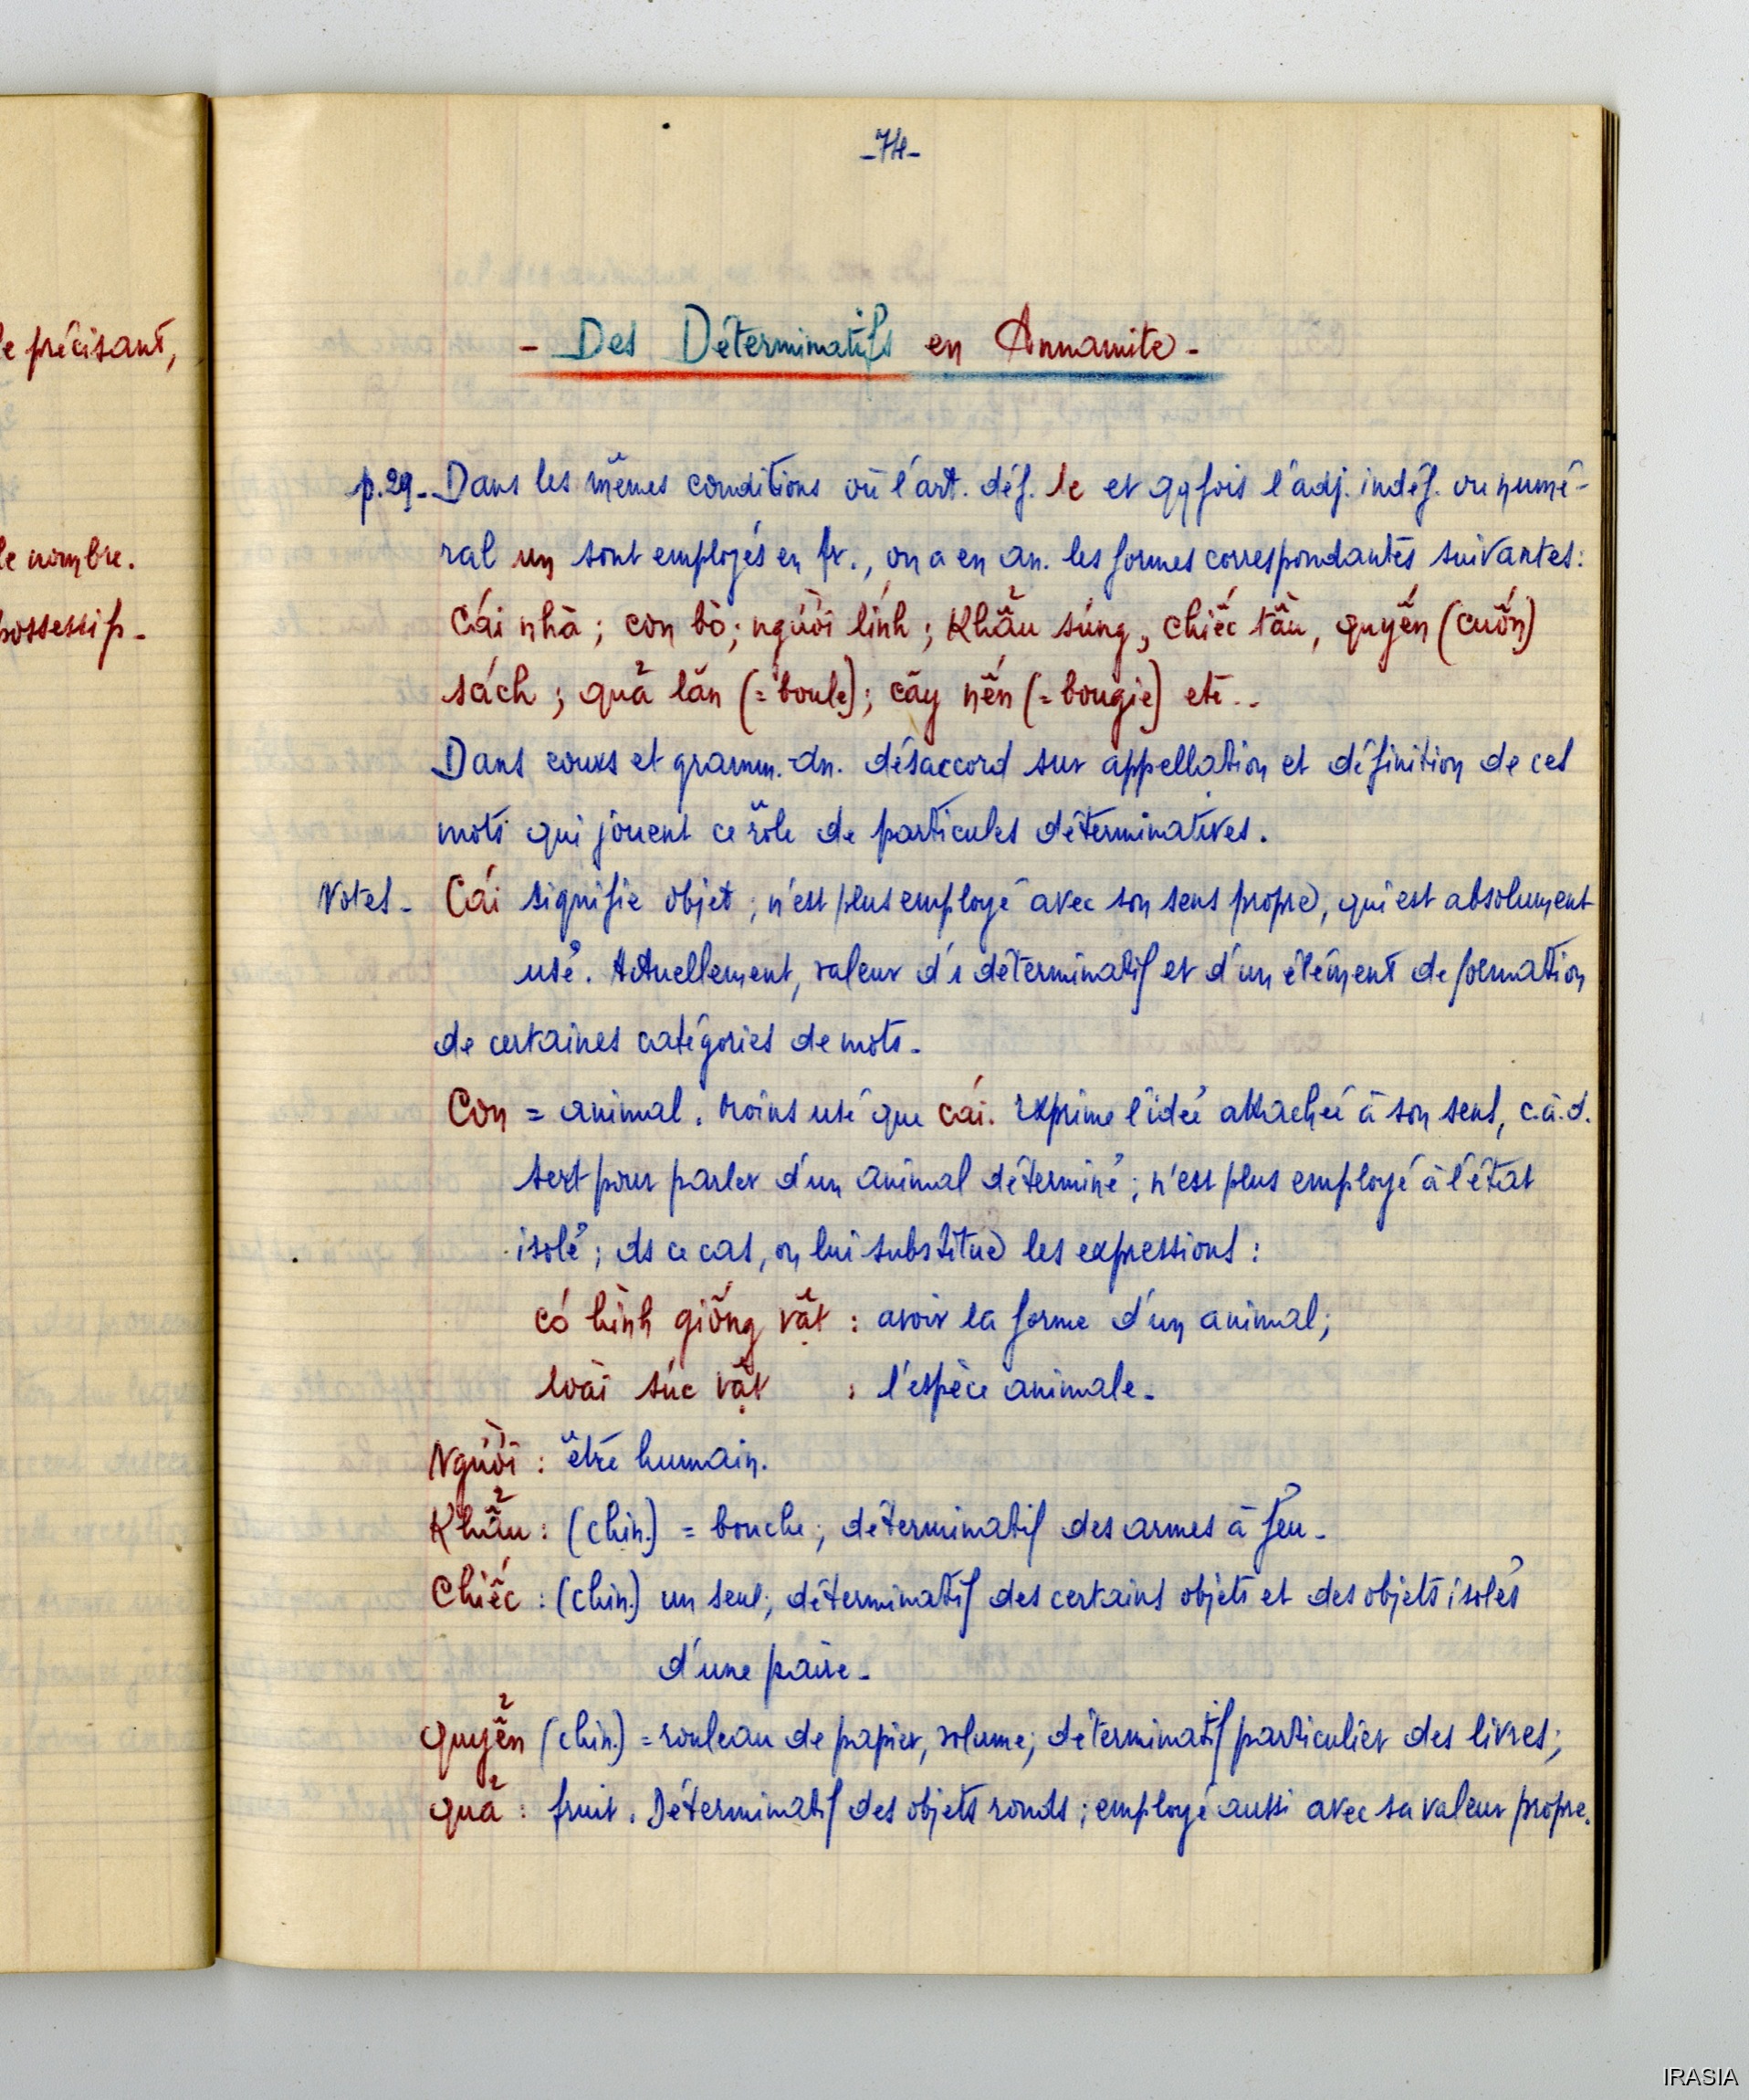 le précisant,
le nombre.
possessif.
-74-
- Des Déterminatifs en Annamite -
p.29. Dans les mêmes conditions où l'art. déf. le et qqfois l'adj. indéf. ou numé-
ral un sont employés en fr., on a en an. les formes correspondantes suivantes:
Cái nhà; con bò; người lính; Khẩu súng, chiếc tầu, quyển (cuốn)
sách; quả lăn (= boule); cây nến (= bougie) etc..
Dans cours et gramm. an. désaccord sur appellation et définition de ces
mots qui jouent ce rôle de particules déterminatives.
Notes - Cái signifie objet; n'est plus employé avec son sens propre, qui est absolument
usé. Actuellement, valeur d'1 déterminatif et d'un élément de formation
de certaines catégories de mots.
Con = animal. Moins usé que cái. Exprime l'idée attachée à son sens, c.à.d.
sert pour parler d'un animal déterminé; n'est plus employé à l'état
isolé; ds ce cas, on lui substitue les expressions:
có hình giống vật: avoir la forme d'un animal;
loài súc vật : l'espèce animale.
Người: être humain.
Khẩu: (chin.) = bouche; déterminatif des armes à feu.
Chiếc: (chin.) un seul; déterminatif des certains objets et des objets isolés
d'une paire.
quyển (chin.) = rouleau de papier, volume; déterminatif particulier des livres;
quả: fruit. Déterminatif des objets ronds; employé aussi avec sa valeur propre.
IRASIA